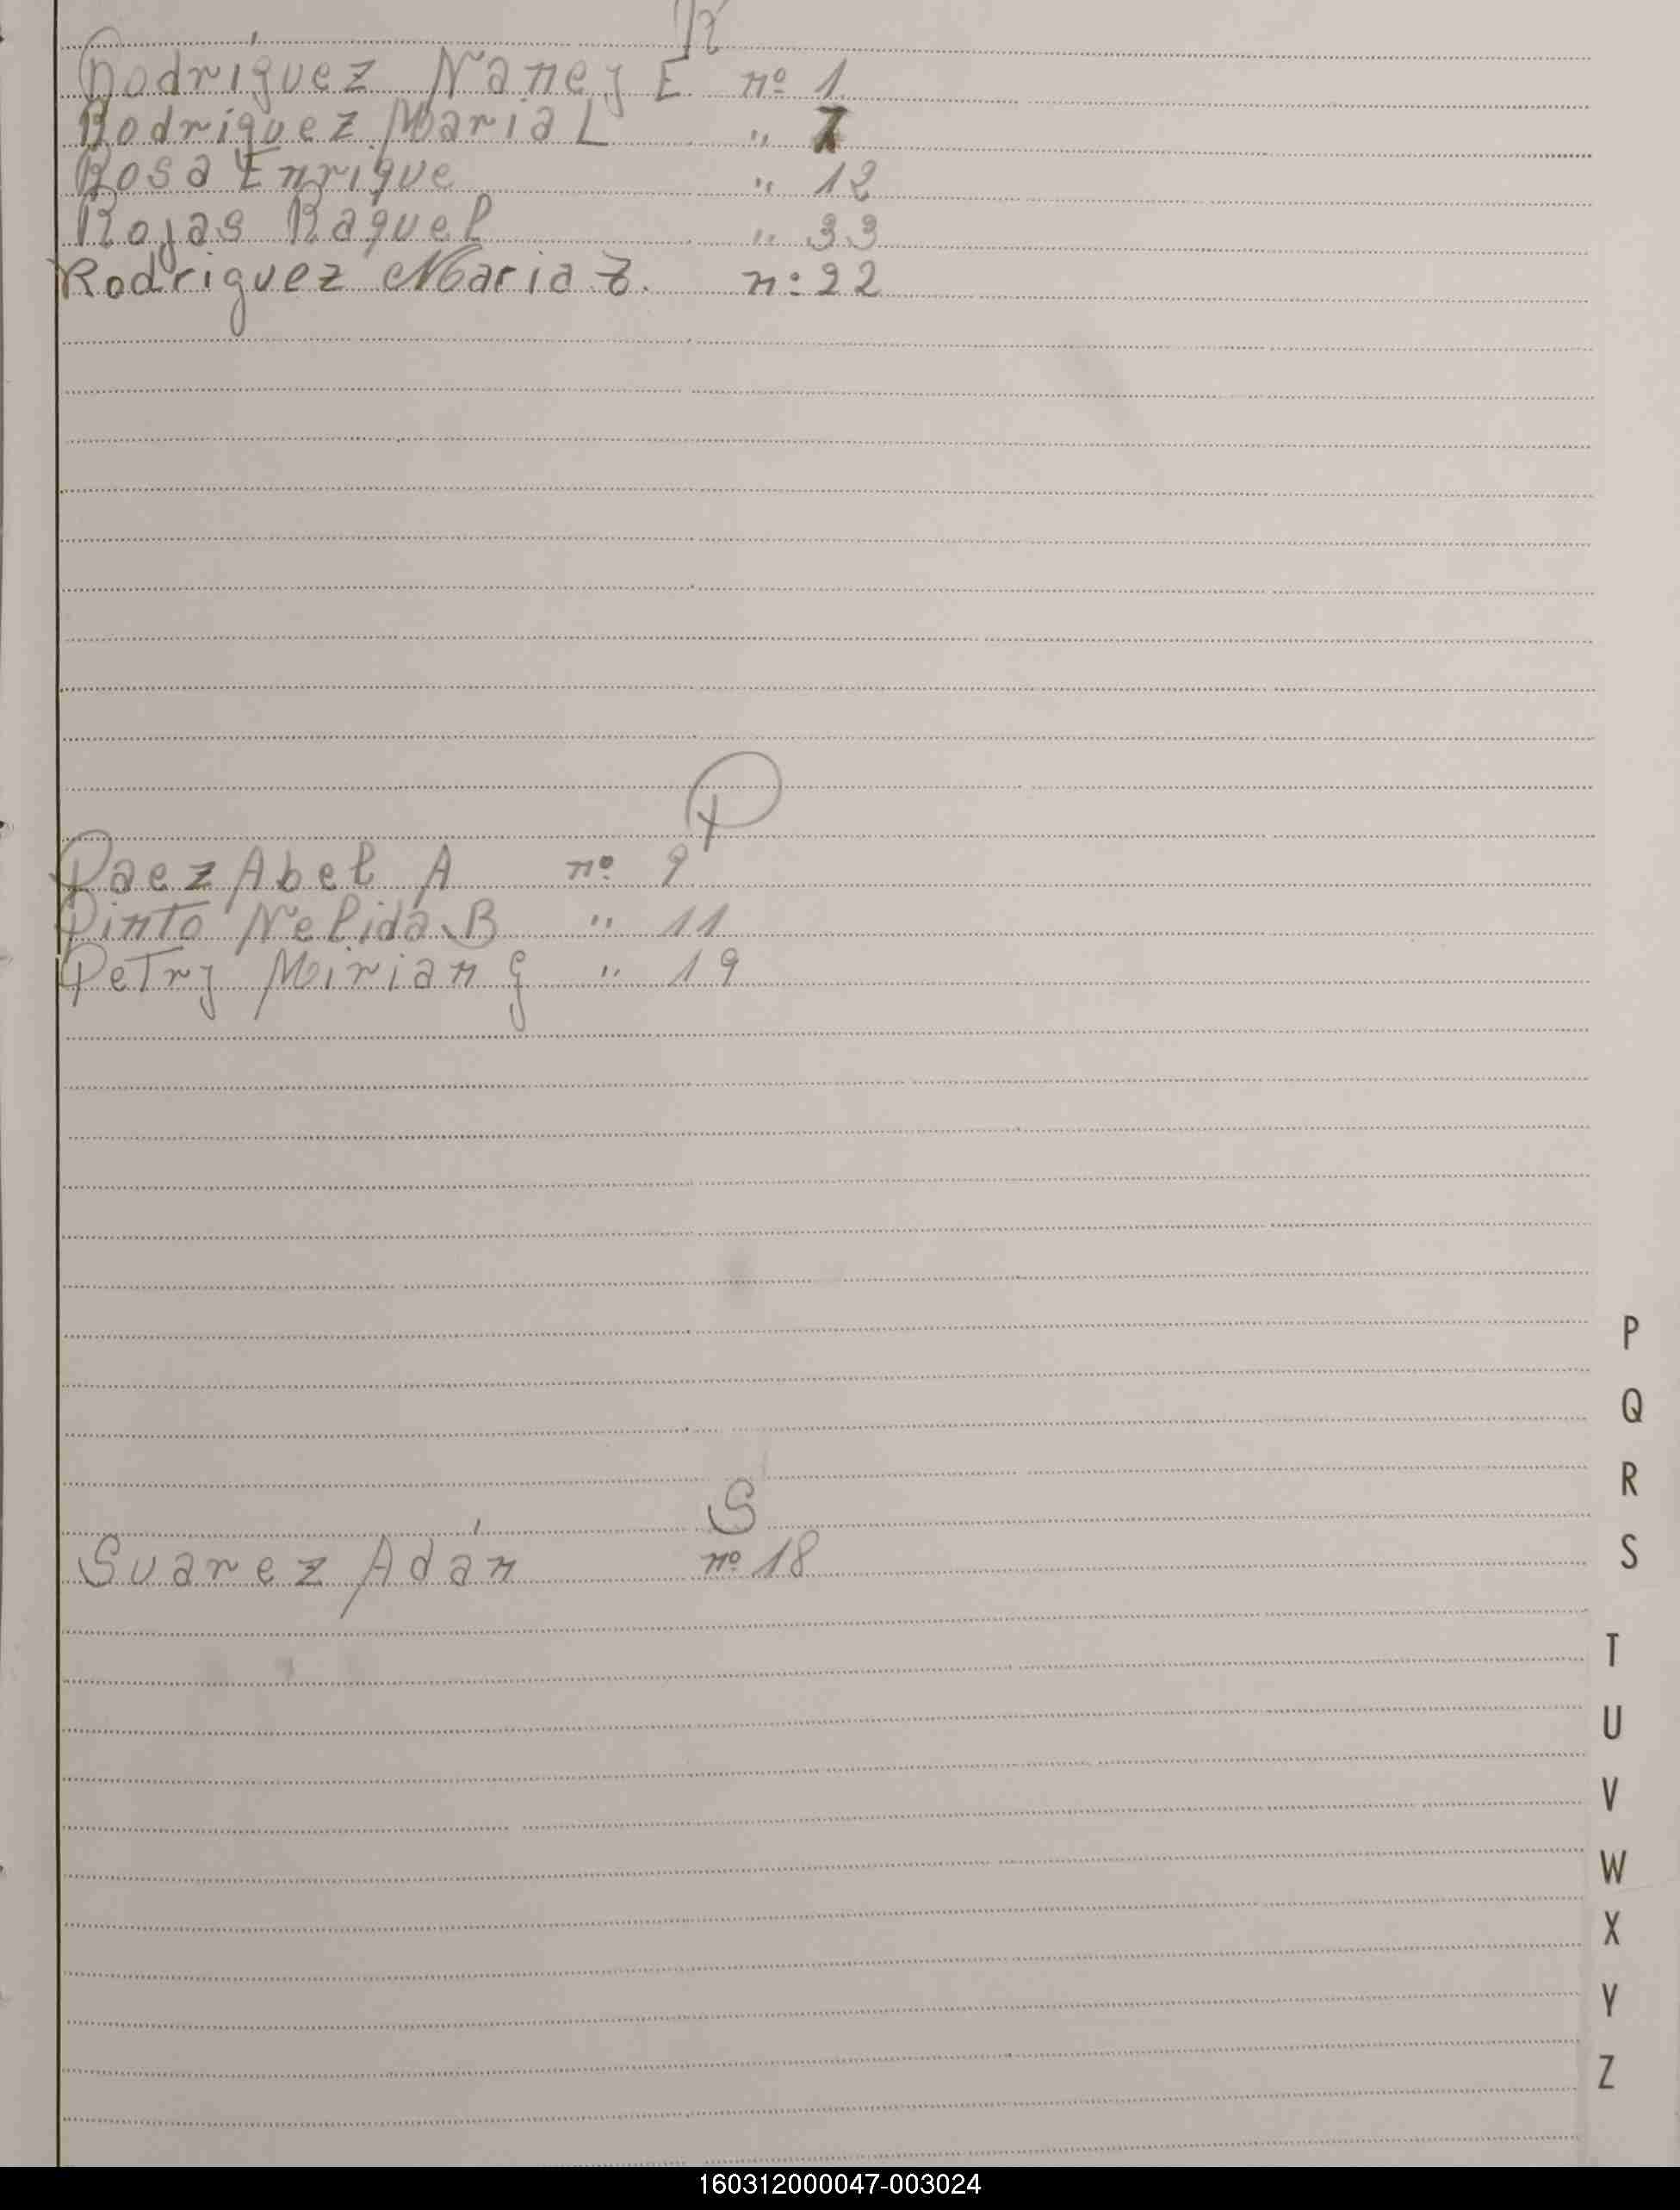 R
Rodríguez Nancy E. nº 1
Rodriguez Maria L " 7
Rosa Enrique " 12
Rojas Raquel " 33
Rodriguez Maria Z. n: 22
P
Paez Abel A nº 9
Pinto Nelida B " 11
Petry Mirian G " 19
S
Suarez Adán nº 18
P
Q
R
S
T
U
V
W
X
Y
Z
160312000047-003024